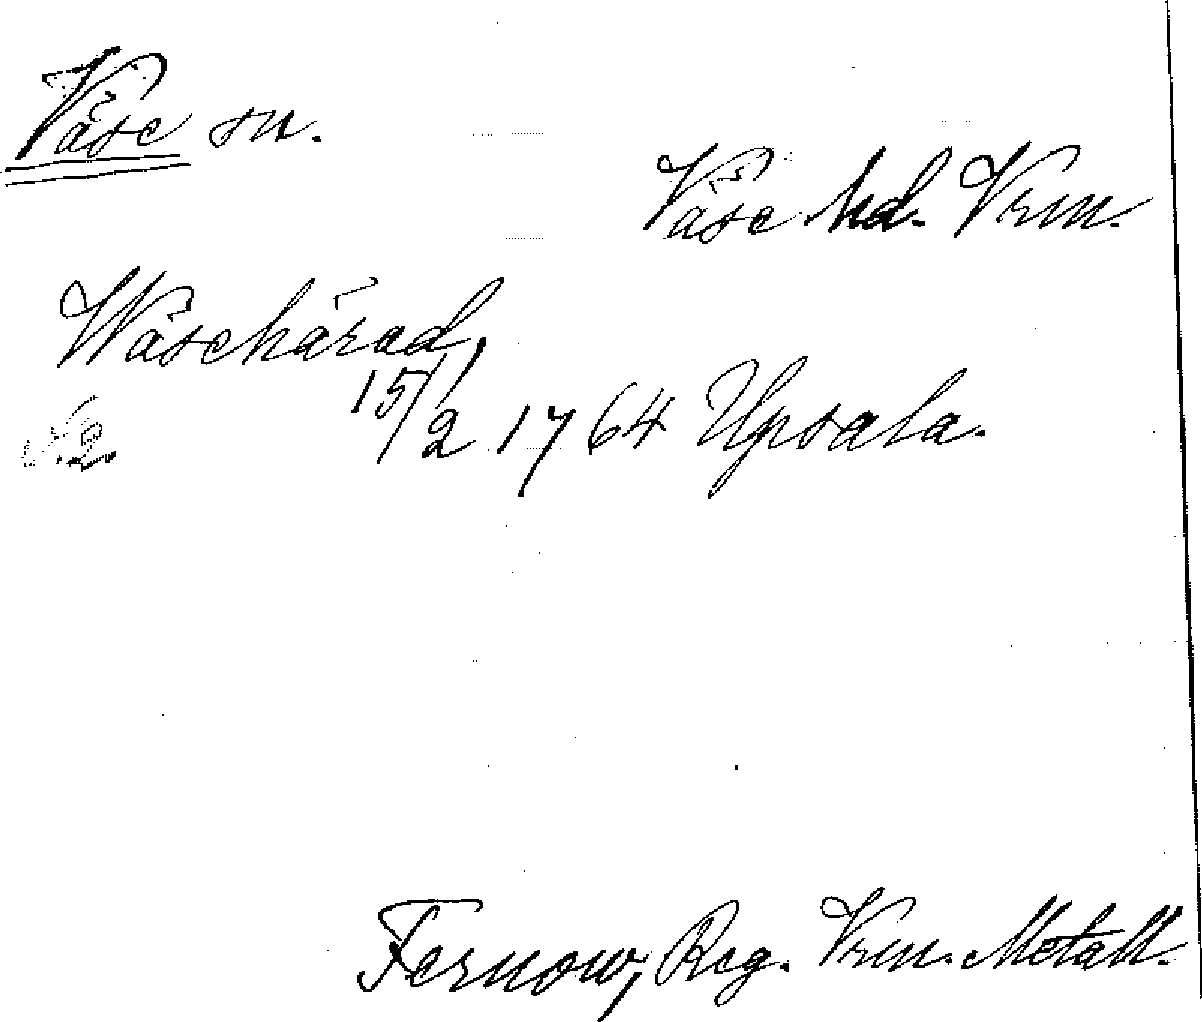 Väse sn.
Väse hd. Vrm.
Wäsehärad,
15/2 1764 Upsala.
Fernow, Reg. Vrm. Metall.